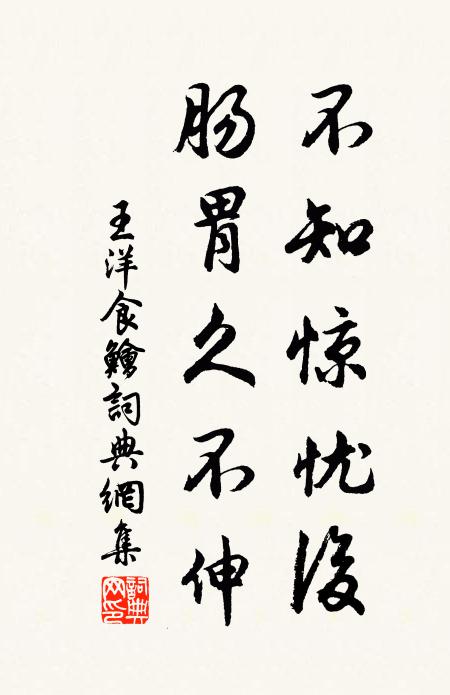 不知惊忧後
肠胃久不伸
王洋食鱠詞典網集
詞典网印